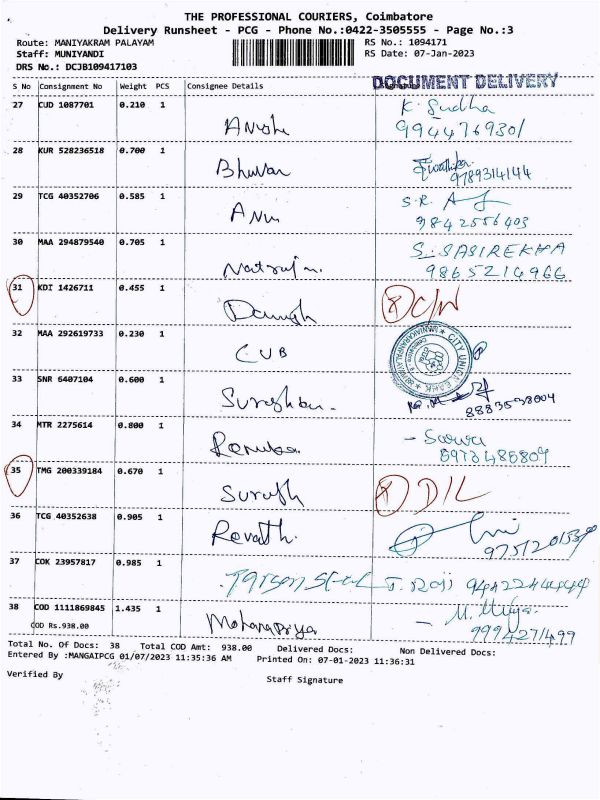 THE PROFESSIONAL COURIERS, Coimbatore
Delivery Runsheet - PCG - Phone No.:0422-3505555 - Page No.:3
Route: MANIYAKRAM PALAYAM RS No.: 1094171
Staff: MUNIYANDI RS Date: 07-Jan-2023
DRS No.: DCJB109417103
DOCUMENT DELIVERY
S No Consignment No Weight PCS Consignee Details
27 CUD 1087701 0.210 1 K. Sudha
9944769301
28 KUR 528236518 0.700 1 Bhuvan
9789314144
29 TCG 40352706 0.585 1 Anu S.R.
9842556403
30 MAA 294879540 0.705 1 Natrajn. S. SASIREKHA
9865214966
31 KDI 1426711 0.455 1 C/N
32 MAA 292619733 0.230 1 CUB
CITY UNION BANK
33 SNR 6407104 0.600 1
34 MTR 2275614 0.800 1 Renuka
35 TMG 200339184 0.670 1 Suresh D/L
36 TCG 40352638 0.905 1 Revath.
37 COK 23957817 0.985 1
38 COD 1111869845 1.435 1 Mohanapriya
9994271499
COD Rs.938.00
Total No. Of Docs: 38 Total COD Amt: 938.00 Delivered Docs: Non Delivered Docs:
Entered By :MANGAIPCG 01/07/2023 11:35:36 AM Printed On: 07-01-2023 11:36:31
Verified By Staff Signature